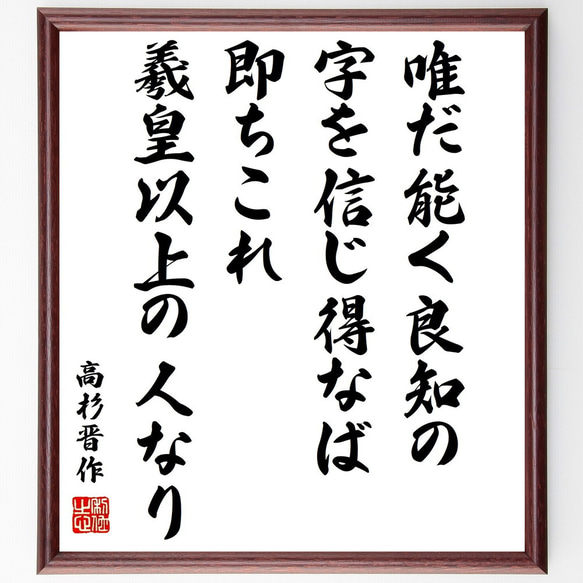 唯だ能く良知の
字を信じ得なば
即ちこれ
羲皇以上の人なり
高杉晋作